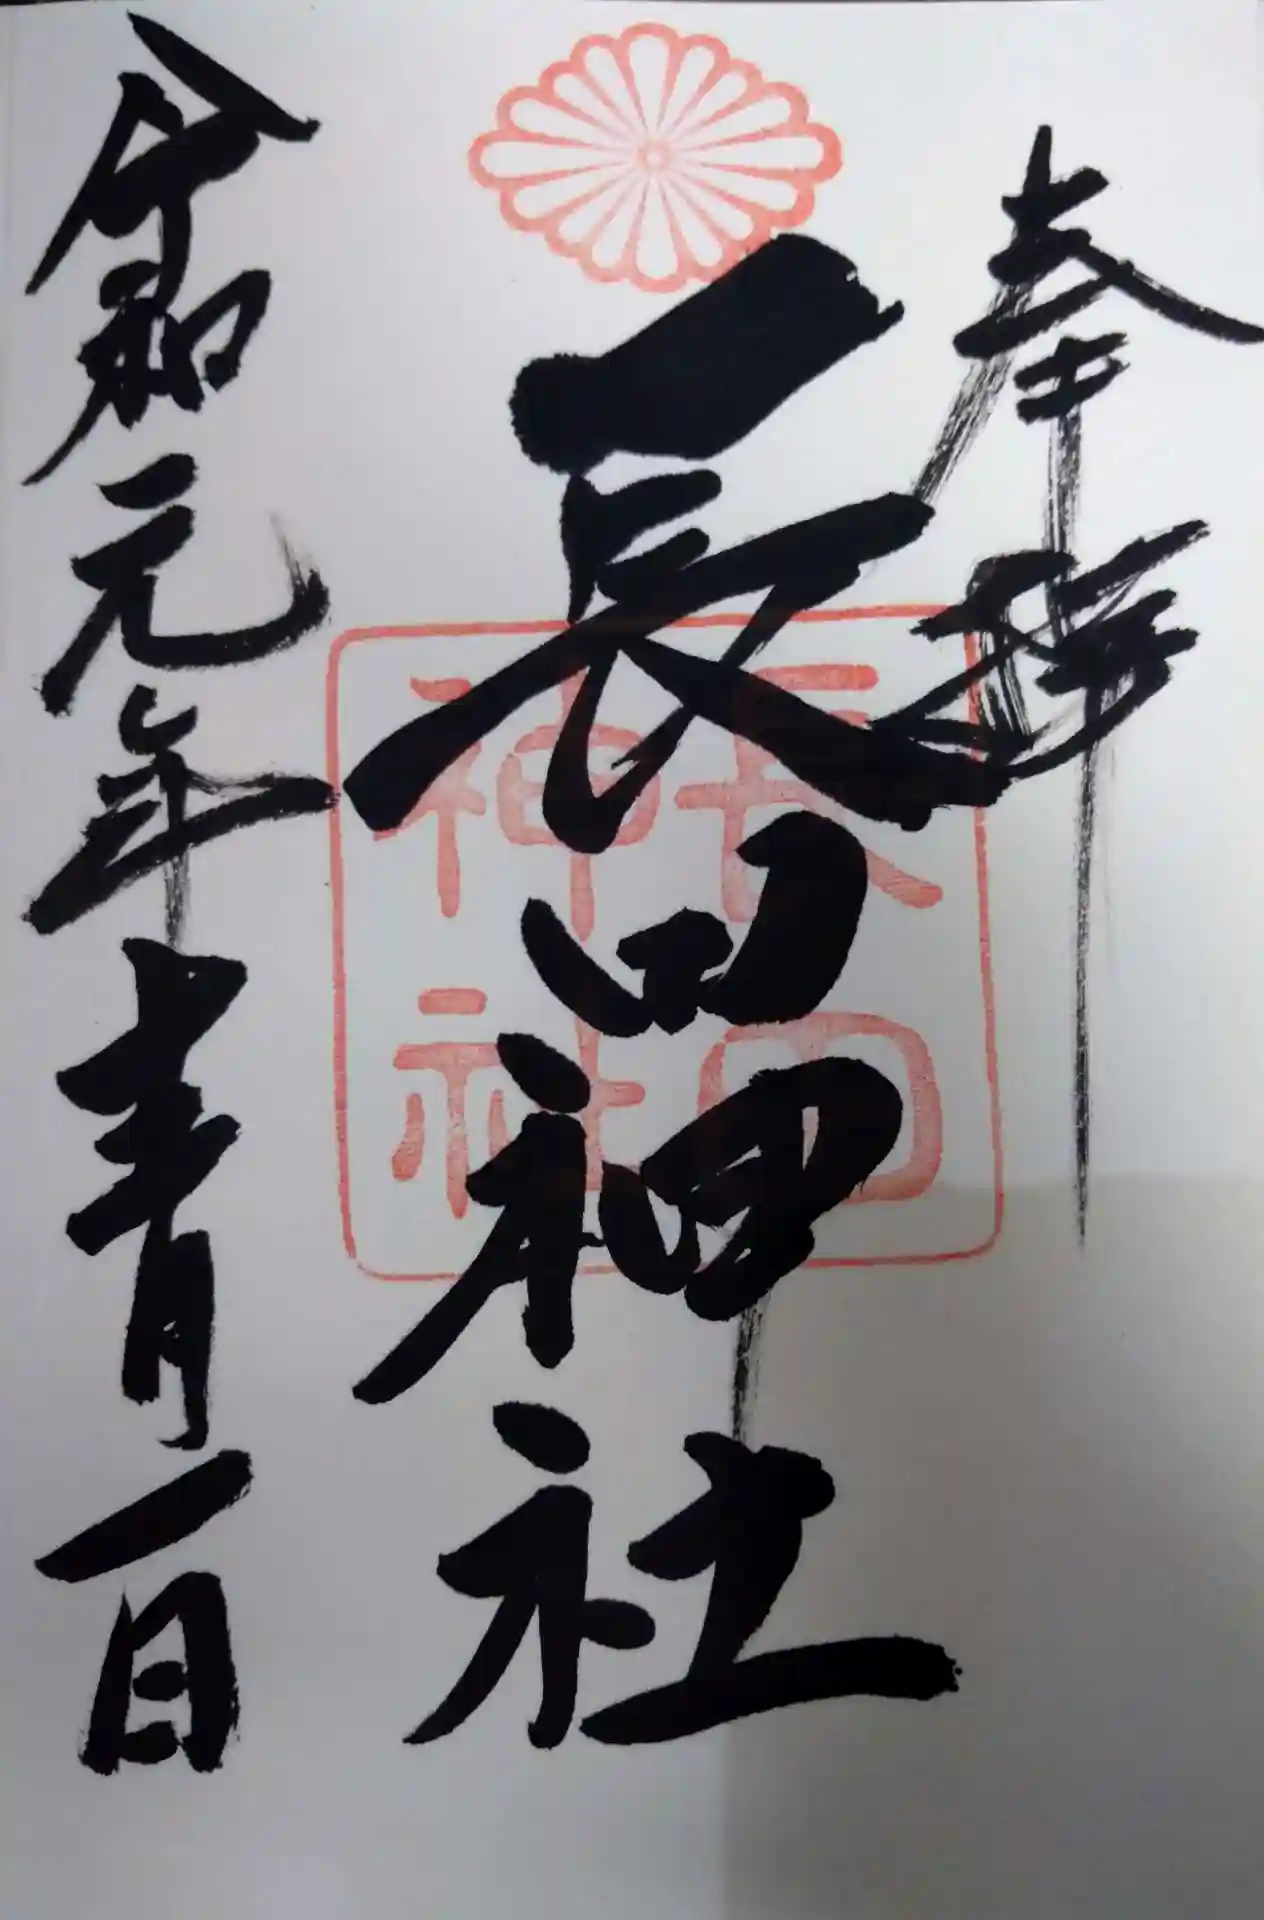 奉拝
長田神社
長田
神社
令和元年 月一日